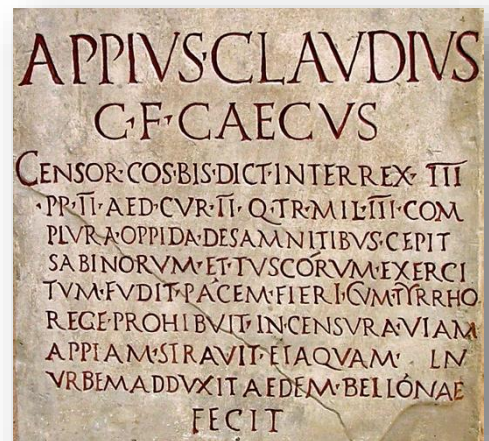 APPIVS·CLAVDIVS
C·F·CAECVS
CENSOR·COS·BIS·DICT·INTERREX·III
·PR·II·AED·CVR·II·Q·TR·MIL·III·COM
PLVRA·OPPIDA·DE·SAMNITIBVS·CEPIT
SABINORVM·ET·TVSCÓRVM·EXERCI
TVM·FVDIT·PÁCEM·FIERI·CVM·PYRRHO
REGE·PROHIBVIT·IN·CENSVRA·VIAM
APPIAM·STRAVIT·ET AQVAM· IN
VRBEM ADDVXIT AEDEM·BELLÓNAE
FECIT